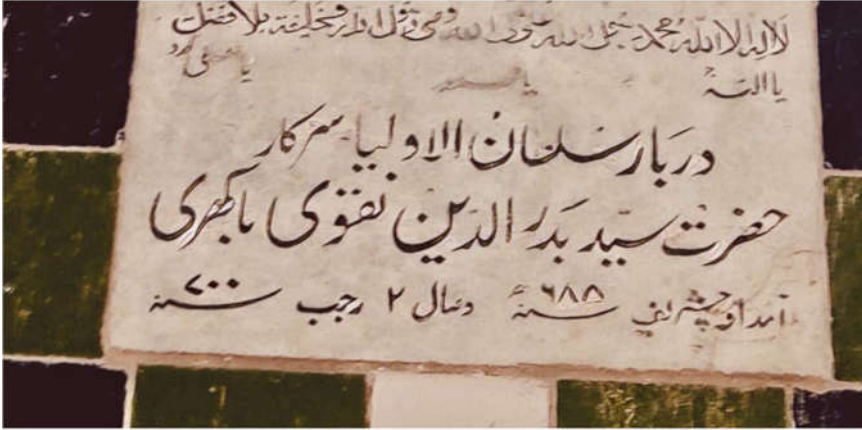 لا الہ الا اللہ محمد رسول اللہ علی ولی اللہ وصی رسول اللہ و خلیفتہ بلا فصل
یا اللہ
دربار سلطان الاولیا سرکار
حضرت سیّد بدر الدین نقوی باکھری
آمد اوچشریف ۶۸۵ سنہ وصال ۲ رجب ۷۰۰ سنہ